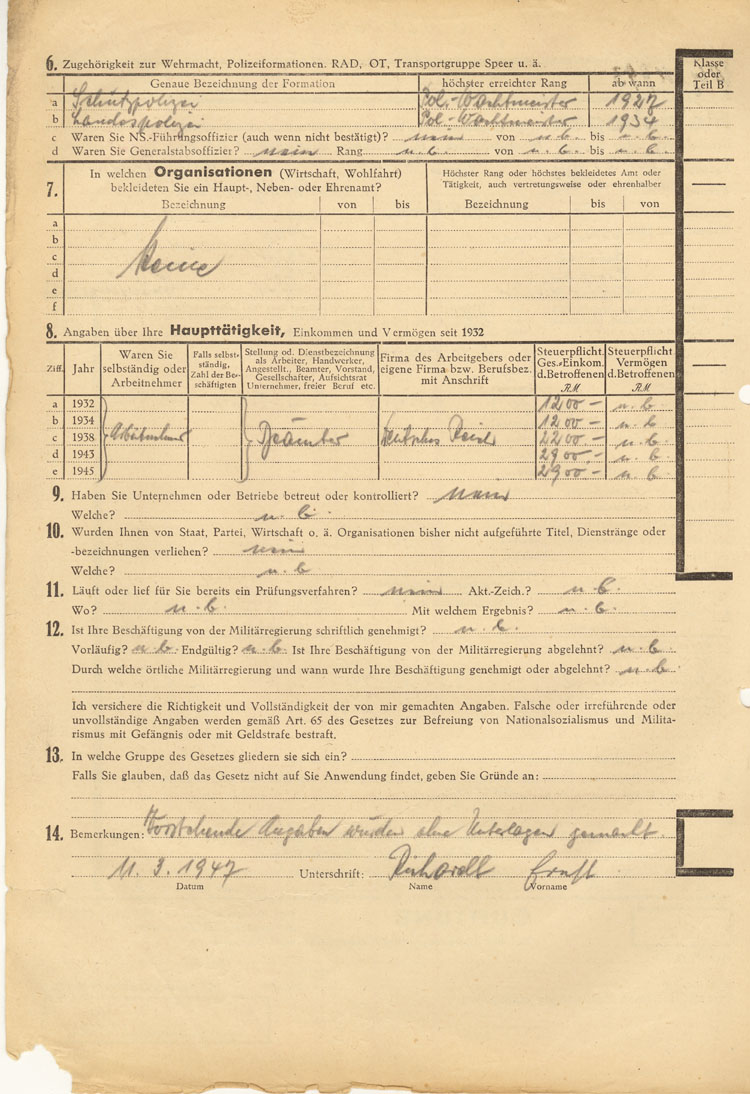 6. Zugehörigkeit zur Wehrmacht, Polizeiformationen. RAD, OT, Transportgruppe Speer u. ä.
Klasse oder Teil B
Genaue Bezeichnung der Formation höchster erreichter Rang ab wann
a Schutzpolizei Pol.-Wachtmeister 1927
b Landespolizei Pol.-Wachtmeister 1934
c Waren Sie NS.-Führungsoffizier (auch wenn nicht bestätigt)? nein von n. b. bis n. b.
d Waren Sie Generalstabsoffizier? nein Rang n. b. von n. b. bis n. b.
7. In welchen Organisationen (Wirtschaft, Wohlfahrt) bekleideten Sie ein Haupt-, Neben- oder Ehrenamt?
Höchster Rang oder höchstes bekleidetes Amt oder Tätigkeit, auch vertretungsweise oder ehrenhalber
Bezeichnung von bis Bezeichnung bis von
a
b
c Keine
d
e
f
8. Angaben über Ihre Haupttätigkeit, Einkommen und Vermögen seit 1932
Ziff. Jahr
Waren Sie selbständig oder Arbeitnehmer
Falls selbständig, Zahl der Beschäftigten
Stellung od. Dienstbezeichnung als Arbeiter, Handwerker, Angestellt., Beamter, Vorstand, Gesellschafter, Aufsichtsrat Unternehmer, freier Beruf etc.
Firma des Arbeitgebers oder eigene Firma bzw. Berufsbez. mit Anschrift
Steuerpflicht. Ges.-Einkom. d.Betroffenen RM
Steuerpflicht Vermögen d.Betroffenen RM
a 1932 1200 – n. b
b 1934 1200 – n. b
c 1938 Arbeitnehmer Beamter Deutsches Reich 2200 – n. b
d 1943 2900 – n. b
e 1945 2900 – n. b
9. Haben Sie Unternehmen oder Betriebe betreut oder kontrolliert? nein
Welche? n. b.
10. Wurden Ihnen von Staat, Partei, Wirtschaft o. ä. Organisationen bisher nicht aufgeführte Titel, Dienstränge oder
-bezeichnungen verliehen? nein
Welche? n. b
11. Läuft oder lief für Sie bereits ein Prüfungsverfahren? nein Akt.-Zeich.? n. b.
Wo? n. b. Mit welchem Ergebnis? n. b.
12. Ist Ihre Beschäftigung von der Militärregierung schriftlich genehmigt? n. b.
Vorläufig? n b. Endgültig? n. b. Ist Ihre Beschäftigung von der Militärregierung abgelehnt? n. b
Durch welche örtliche Militärregierung und wann wurde Ihre Beschäftigung genehmigt oder abgelehnt? n. b
Ich versichere die Richtigkeit und Vollständigkeit der von mir gemachten Angaben. Falsche oder irreführende oder
unvollständige Angaben werden gemäß Art. 65 des Gesetzes zur Befreiung von Nationalsozialismus und Milita-
rismus mit Gefängnis oder mit Geldstrafe bestraft.
13. In welche Gruppe des Gesetzes gliedern sie sich ein?
Falls Sie glauben, daß das Gesetz nicht auf Sie Anwendung findet, geben Sie Gründe an:
14. Bemerkungen: Vorstehende Angaben wurden ohne Unterlagen gemacht.
11. 3. 1947 Unterschrift: Reichardt Ernst
Datum Name Vorname